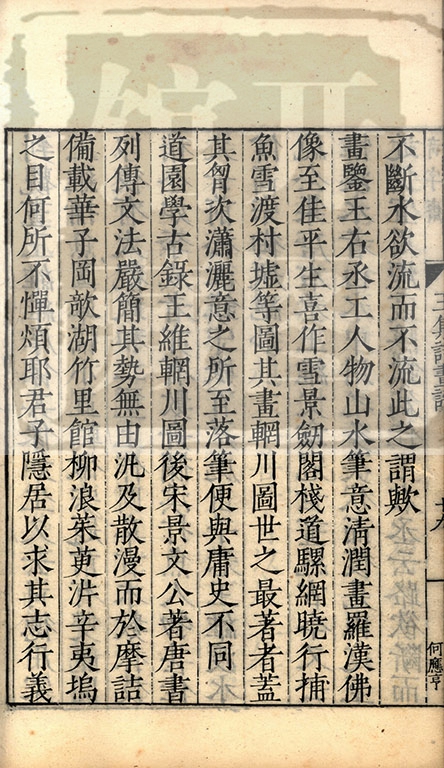 不斷水欲流而不流此之謂歟
畫鑒王右丞工人物山水筆意淸潤畫羅漢佛
像至佳平生喜作雪景劒閣棧道騾網曉行捕
魚雪渡村墟等圖其畫輞川圖世之最著者蓋
其胷次瀟灑意之所至落筆便與庸史不同
道園學古錄王維輞川圖後宋景文公著唐書
列傳文法嚴簡其勢無由汎及散漫而於摩詰
備載華子岡欹湖竹里館柳浪茱萸沜辛夷塢
之目何所不憚煩耶君子隱居以求其志行義
何應亨